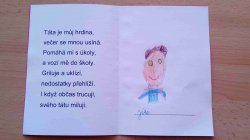 Táta je můj hrdina,
večer se mnou usíná.
Pomáhá mi s úkoly,
a vozí mě do školy.
Griluje a uklízí,
nedostatky přehlíží.
I když občas trucuji,
svého tátu miluji.